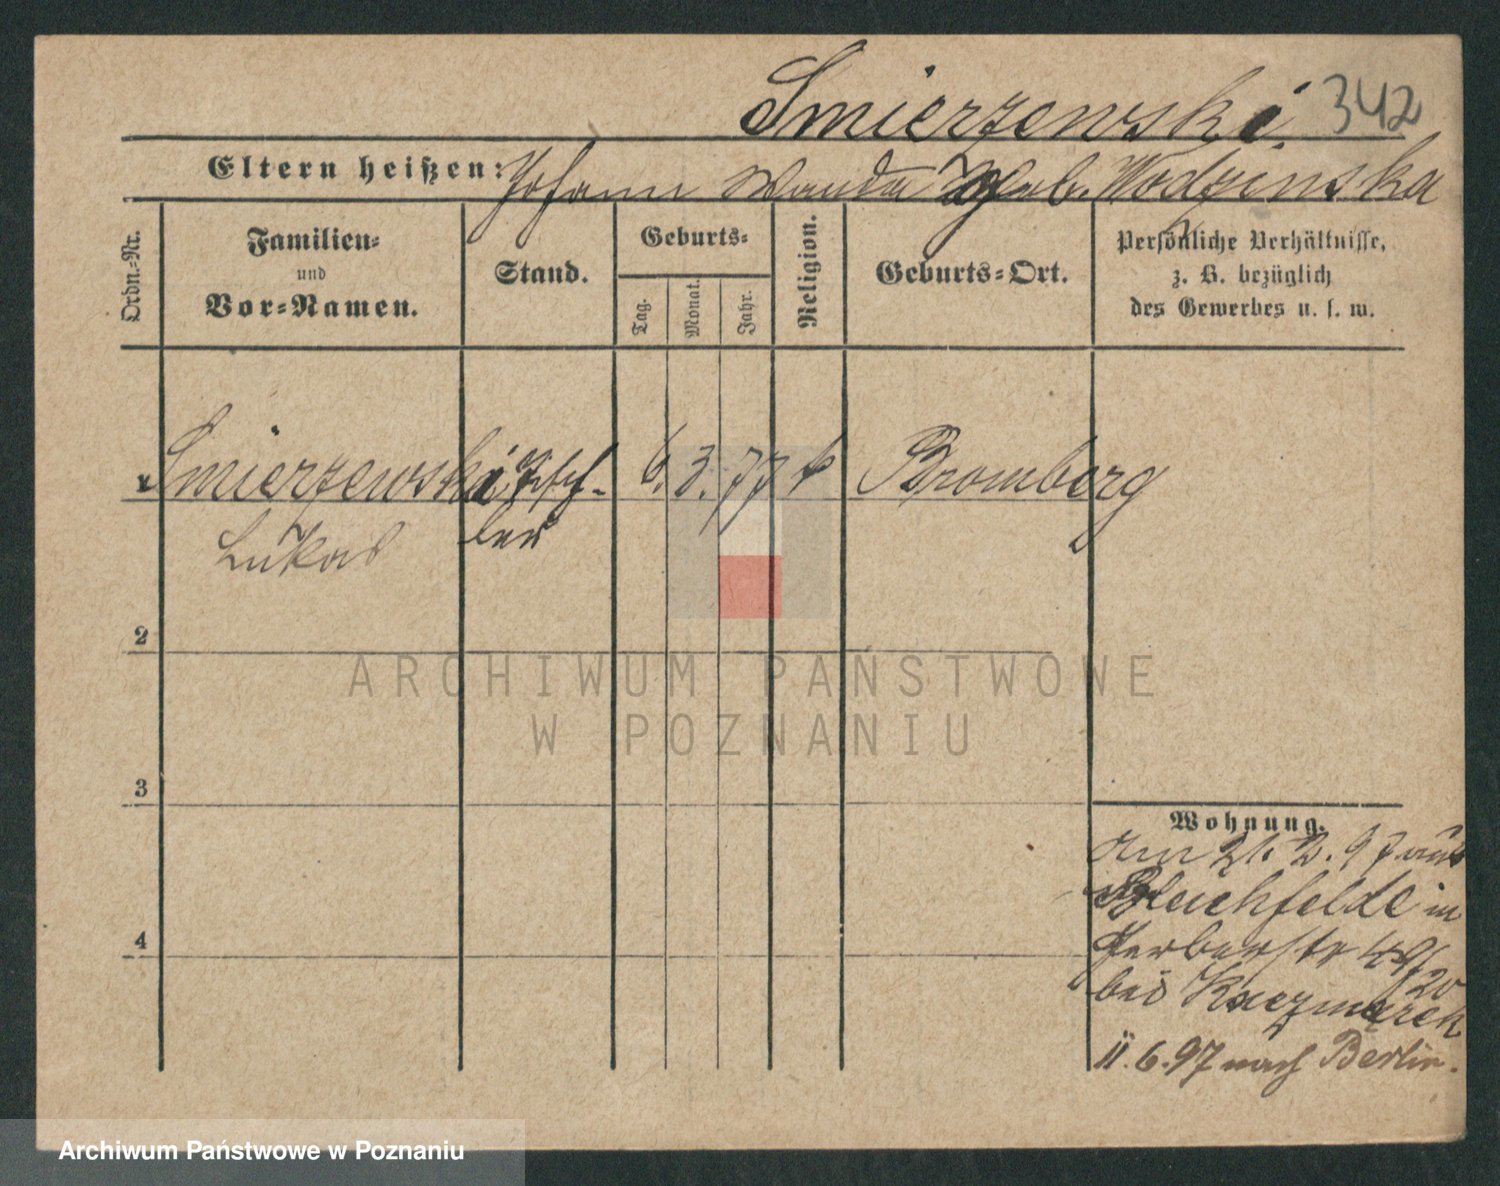 Smierzewski 342
Eltern heißen: Johann Wanda geb. Wodzinska
Ordn.-Nr.
Familien-
und
Vor-Namen.
Stand.
Geburts-
Tag.
Monat.
Jahr.
Religion.
Geburts-Ort.
Persönliche Verhältnisse,
z. B. bezüglich
des Gewerbes u. s. w.
1 Smierzewski Tisch- 6. 3. 77 k Bromberg
Lukas ler
2
3
4
Wohnung.
Am 21. 2. 97 aus
Bleichfelde in
Gerberstr 19/20
bei Kaczmarek
11.6.97 nach Berlin.
ARCHIWUM PAŃSTWOWE
W POZNANIU
Archiwum Państwowe w Poznaniu